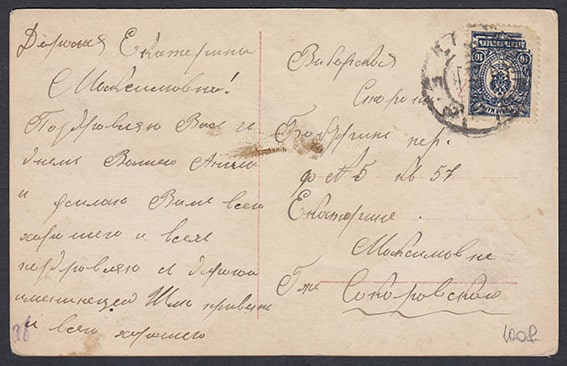 Дорогая Екатерина
Максимовна!
Поздравляю Вас с
днем Вашего Ангела
и желаю Вам всего
хорошего и всех
поздравляю с дорогой
именинницей Шлю привет
и всего хорошего
36
Выборская
Сторона
Бабурин пер.
д № 5 кв 57
Екатерине
Максимовне
Г-же Сокоровской
100 ₽
10
10